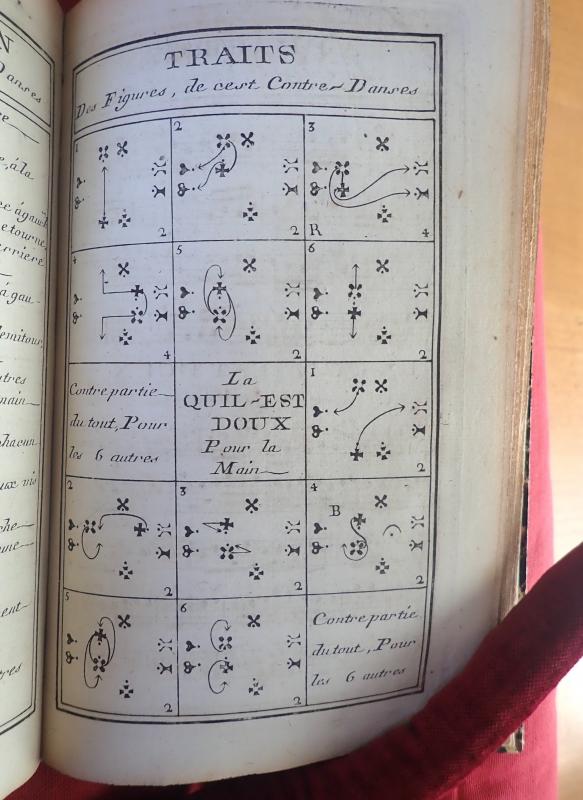 N
Danses
re
e, à la
ec á gauch
etourne,
errière
á gau-
demitour,
utres
main
hacun
ux vis
che
ent
tres
TRAITS
Des Figures, de cest Contre-Danses
1
2
2
2
3
R
4
4
4
5
2
6
2
Contre partie
du tout, Pour
les 6 autres
La
QUIL-EST
DOUX
Pour la
Main
1
2
2
2
3
2
4
B
2
5
2
6
2
Contre partie
du tout, Pour
les 6 autres